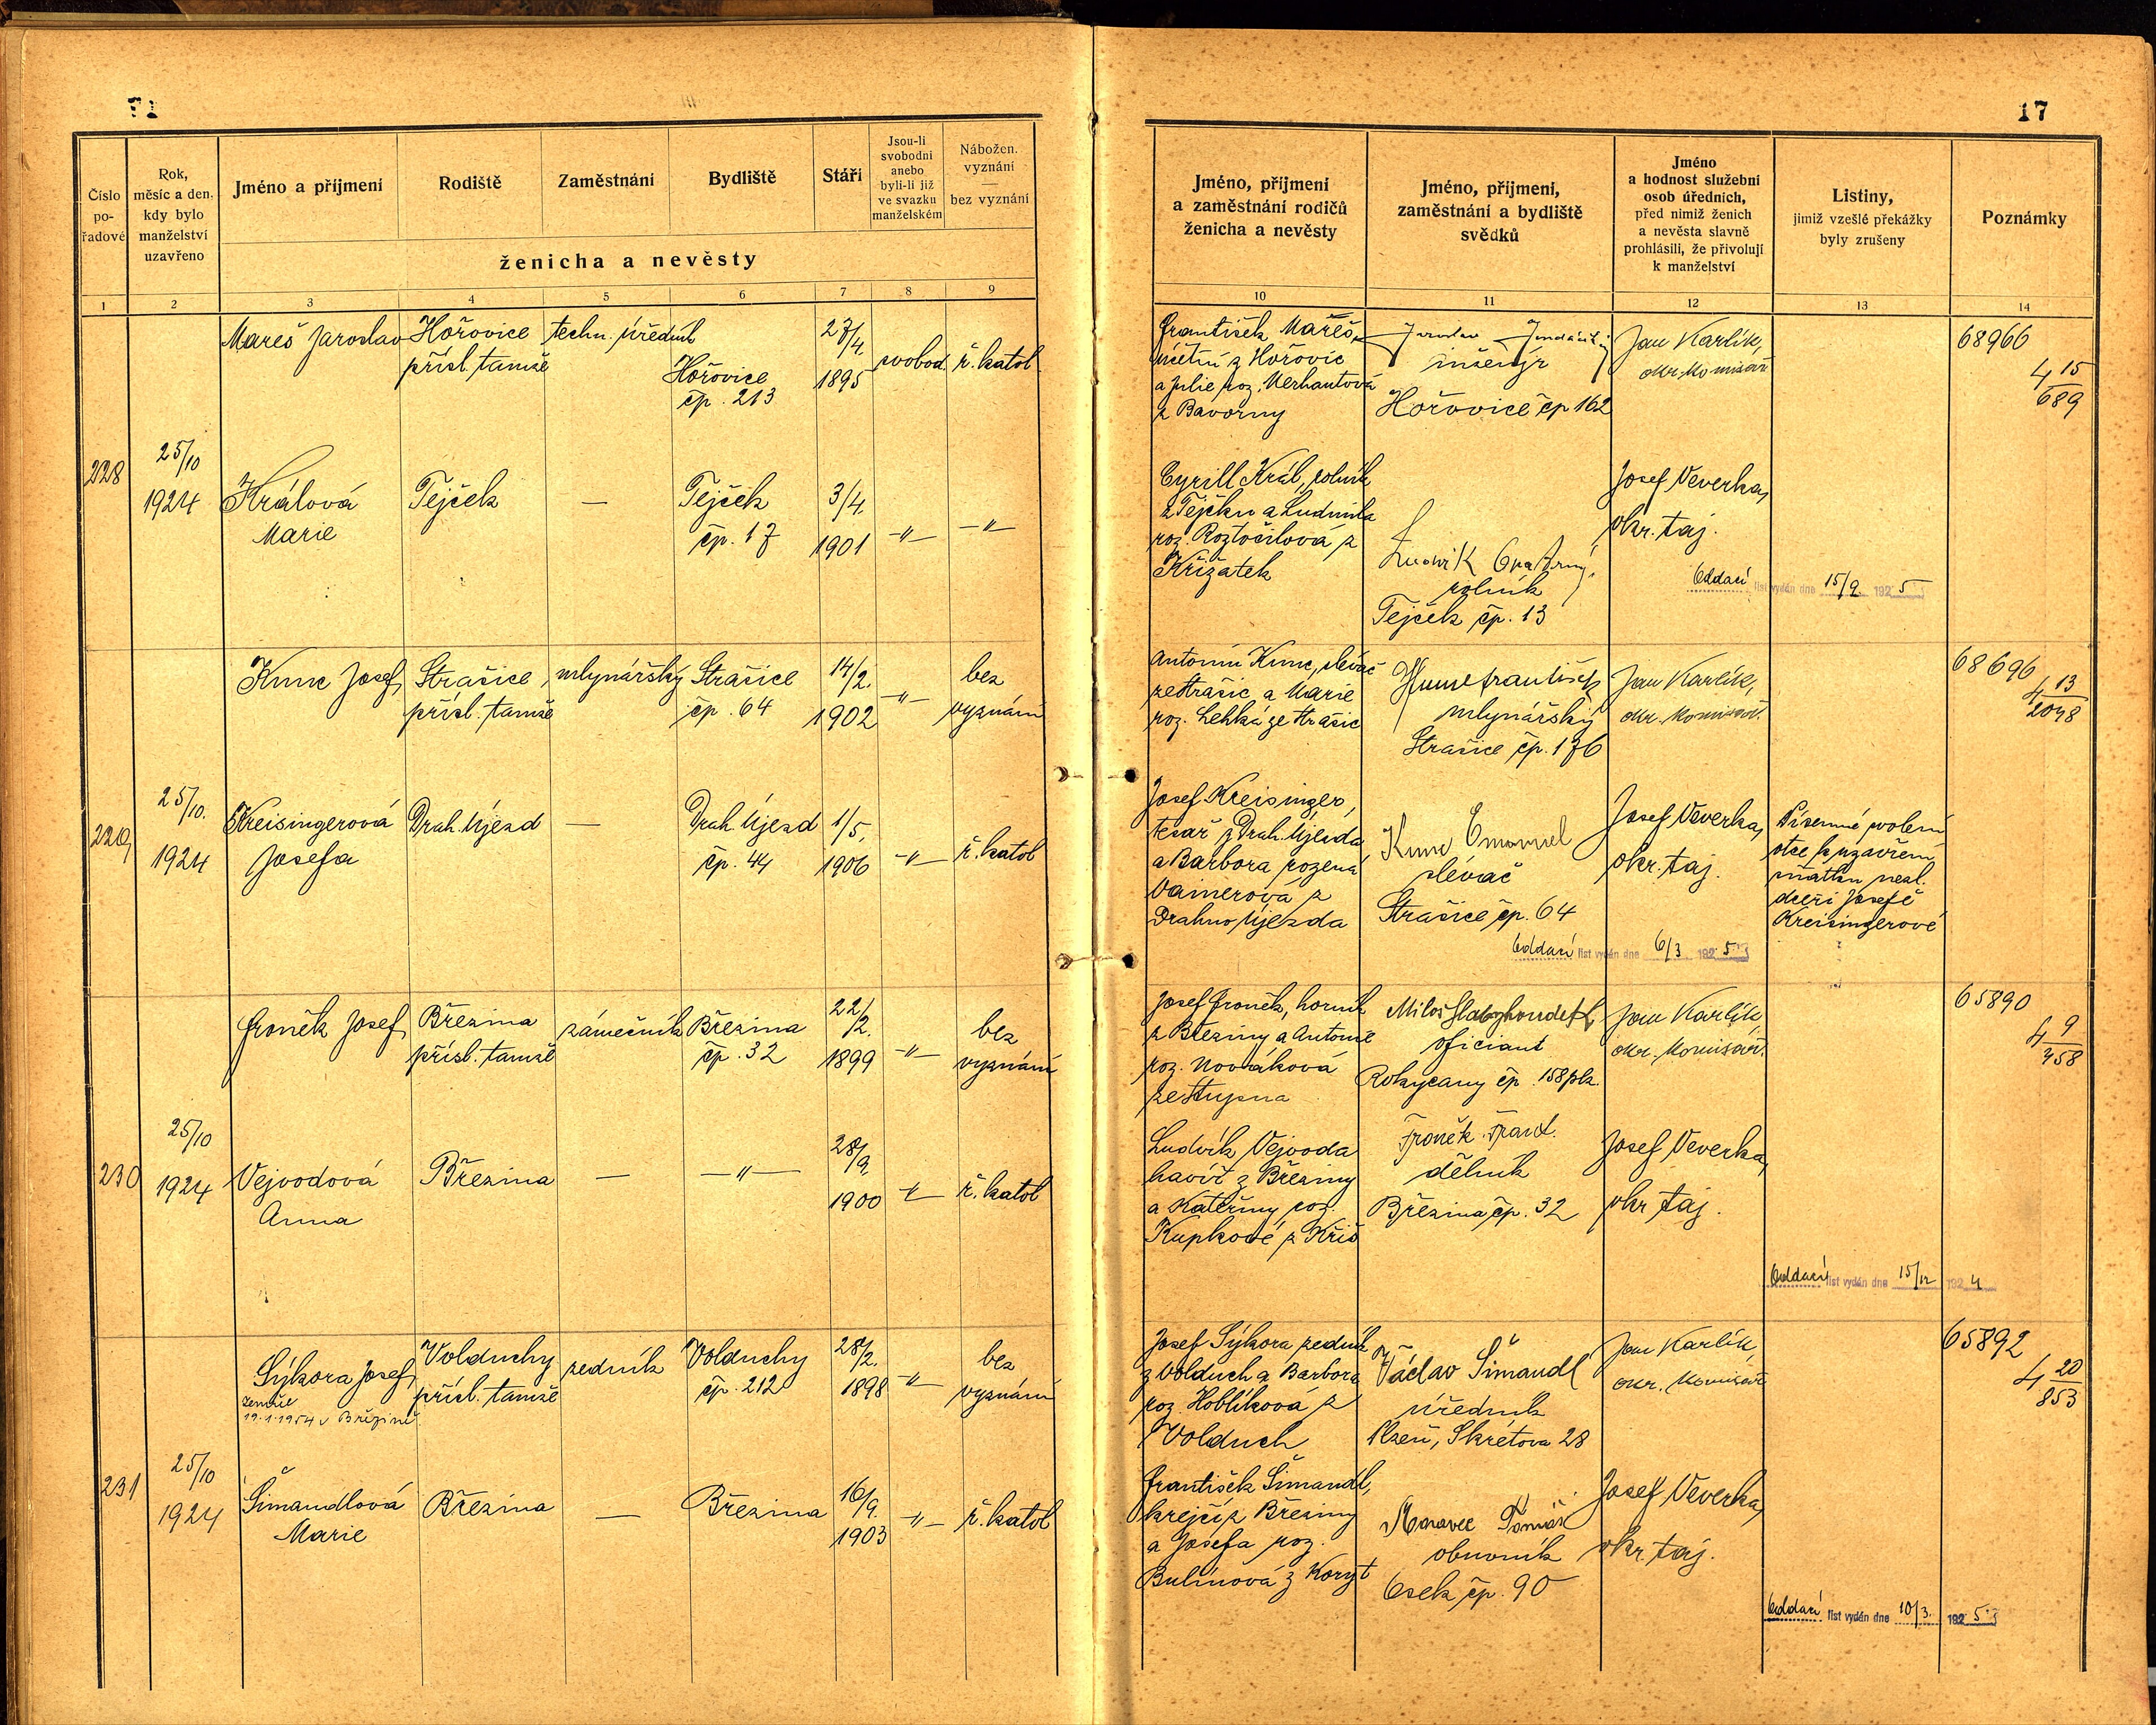 17
Číslo po-řadové
Rok, měsíc a den, kdy bylo manželství uzavřeno
Jméno a příjmení
Rodiště
Zaměstnání
Bydliště
Stáří
Jsou-li svobodni anebo byli-li již ve svazku manželském
Nábožen. vyznání — bez vyznání
ženicha a nevěsty
1 2 3 4 5 6 7 8 9
Jméno, příjmení a zaměstnání rodičů ženicha a nevěsty
Jméno, příjmení, zaměstnání a bydliště svědků
Jméno a hodnost služební osob úředních, před nimiž ženich a nevěsta slavně prohlásili, že přivolují k manželství
Listiny, jimiž vzešlé překážky byly zrušeny
Poznámky
10 11 12 13 14
228
25/10
1924
Mareš Jaroslav
Hořovice
přísl. tamže
techn. úředník
Hořovice
čp. 213
27/4.
1895
svobod.
ř. katol
František Mareš,
účetní z Hořovic
a Julie roz. Verhautová
z Bavorny
inženýr
Hořovice čp 162
Jan Karlík,
okr. komisař
68966
4 15/689
Králová
Marie
Tejček
—
Tejček
čp. 17
3/4.
1901
—"—
—"—
Cyrill Král, rolník
z Tejčku a Ludmila
roz. Roztočilová z
Křižatek
Ludvík
rolník
Tejček čp. 13
Josef Veverka,
okr. taj.
Oddací list vydán dne 15/9 1925
229
25/10.
1924
Kunc Josef,
Strašice,
přísl. tamže
mlynářský
Strašice
čp. 64
14/2.
1902
—"—
bez
vyznání
Antonín Kunc, slévač
ze Strašic a Marie
roz. Lehká ze Strašic
Kunc František
mlynářský
Strašice čp. 176
Jan Karlík,
okr. komisař.
68696
4 13/2048
Kreisingerová
Josefa
Drah. Újezd
—
Drah. Újezd
čp. 44
1/5.
1906
—"—
ř. katol
Josef Kreisinger,
tesař z Drah. Újezda
a Barbora rozená
Vainerová z
Drahno Újezda
Kunc Emanuel
slévač
Strašice čp. 64
Josef Veverka,
okr. taj.
Písemné svolení
otce k uzavření
sňatku nezl.
dceři Josefě
Kreisingerové
Oddací list vydán dne 6/3 1925
230
25/10
1924
Froněk Josef,
Březina
přísl. tamže
zámečník
Březina
čp. 32
22/2.
1899
—"—
bez
vyznání
Josef Froněk, horník
z Březiny a Antonie
roz. Nováková
ze Stupna
Miloš
oficiant
Rokycany čp. 158 plz.
Jan Karlík
okr. komisař.
65890
4 9/358
Vejvodová
Anna
Březina
—
—"—
28/9.
1900
—"—
ř. katol
Ludvík Vejvoda
havíř z Březiny
a Kateřiny roz.
Kupkové z Kříš
Froněk Frant.
dělník
Březina čp. 32
Josef Veverka,
okr taj.
Oddací list vydán dne 15/12 1924
231
25/10
1924
Sýkora Josef,
zemřel
19.1.1954 v Březině
Volduchy
přísl. tamže
zedník
Volduchy
čp. 212
28/2.
1898
—"—
bez
vyznání
Josef Sýkora zedník
z Volduch a Barbora
roz. Hoblíková z
Volduch
Václav Šimandl
úředník
Plzeň, Skrétova 28
Jan Karlík,
okr. komisař
65892
4 20/853
Šimandlová
Marie
Březina
—
Březina
16/9.
1903
—"—
ř. katol
František Šimandl,
krejčí z Březiny
a Josefa roz.
Bulínová z Koryt
Moravec Tomáš
obuvník
Osek čp. 90
Josef Veverka,
okr. taj.
Oddací list vydán dne 10/3. 1925